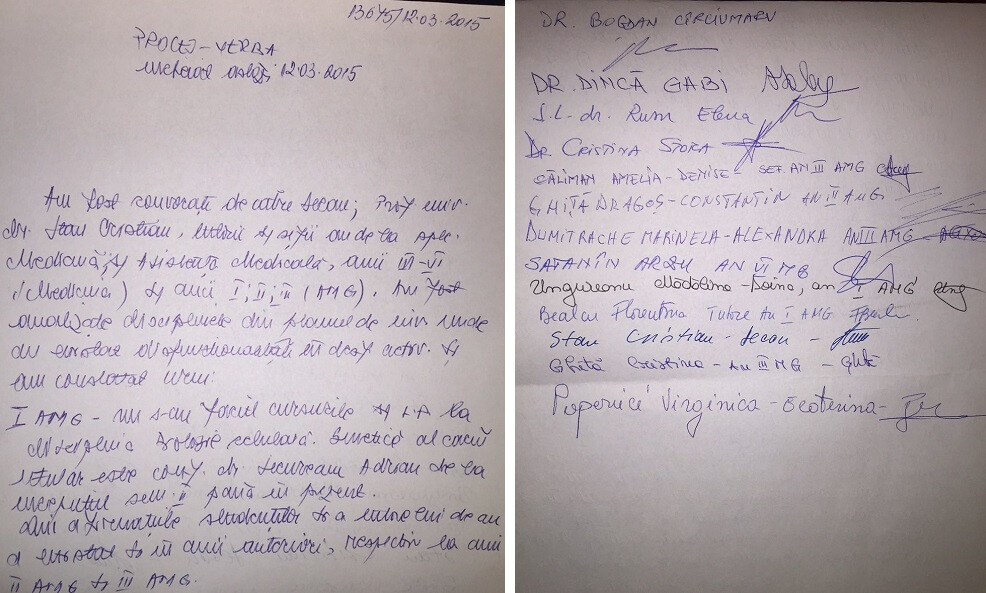 13645/12.03.2015
PROCES-VERBA
încheiat astăzi 12.03.2015
Am fost convocați de către Decan, Prof univ.
dr. Stan Cristian, tutorii și șefii de la spec.
Medicină, și Asistență Medicală, anii III-VI
(Medicină) și anii I, II, III (AMG). Au fost
analizate disciplinele din planul de inv unde
au existat disfuncționalități în desf activ. și
am constatat urm:
I AMG - nu s-au făcut cursurile și LP la
disciplina Biologie celulară. Genetică al cărui
titular este conf. dr. Adrian de la
începutul sem. II până în prezent.
Din afirmațiile studenților și a tutorelui de an
a existat și în anii anteriori, respectiv la anii
II AMG și III AMG.
DR. BOGDAN CÎRCIUMARU
DR. DINCĂ GABI
Ș.L. dr. Rusu Elena
DR CRISTINA STOIA
CĂLIMAN AMELIA-DENISE - SEF. AN III AMG
GHIȚĂ DRAGOȘ-CONSTANTIN AN II AMG
DUMITRACHE MARINELA-ALEXANDRA AN III AMG
AN VI MG
Ungureanu Mădălina-Doina, an I AMG
Florentina Tutore An I AMG
Stan Cristian - Decan -
Ghiță Cristina - AN III MG -
Popenică Virginica-Ecaterina-